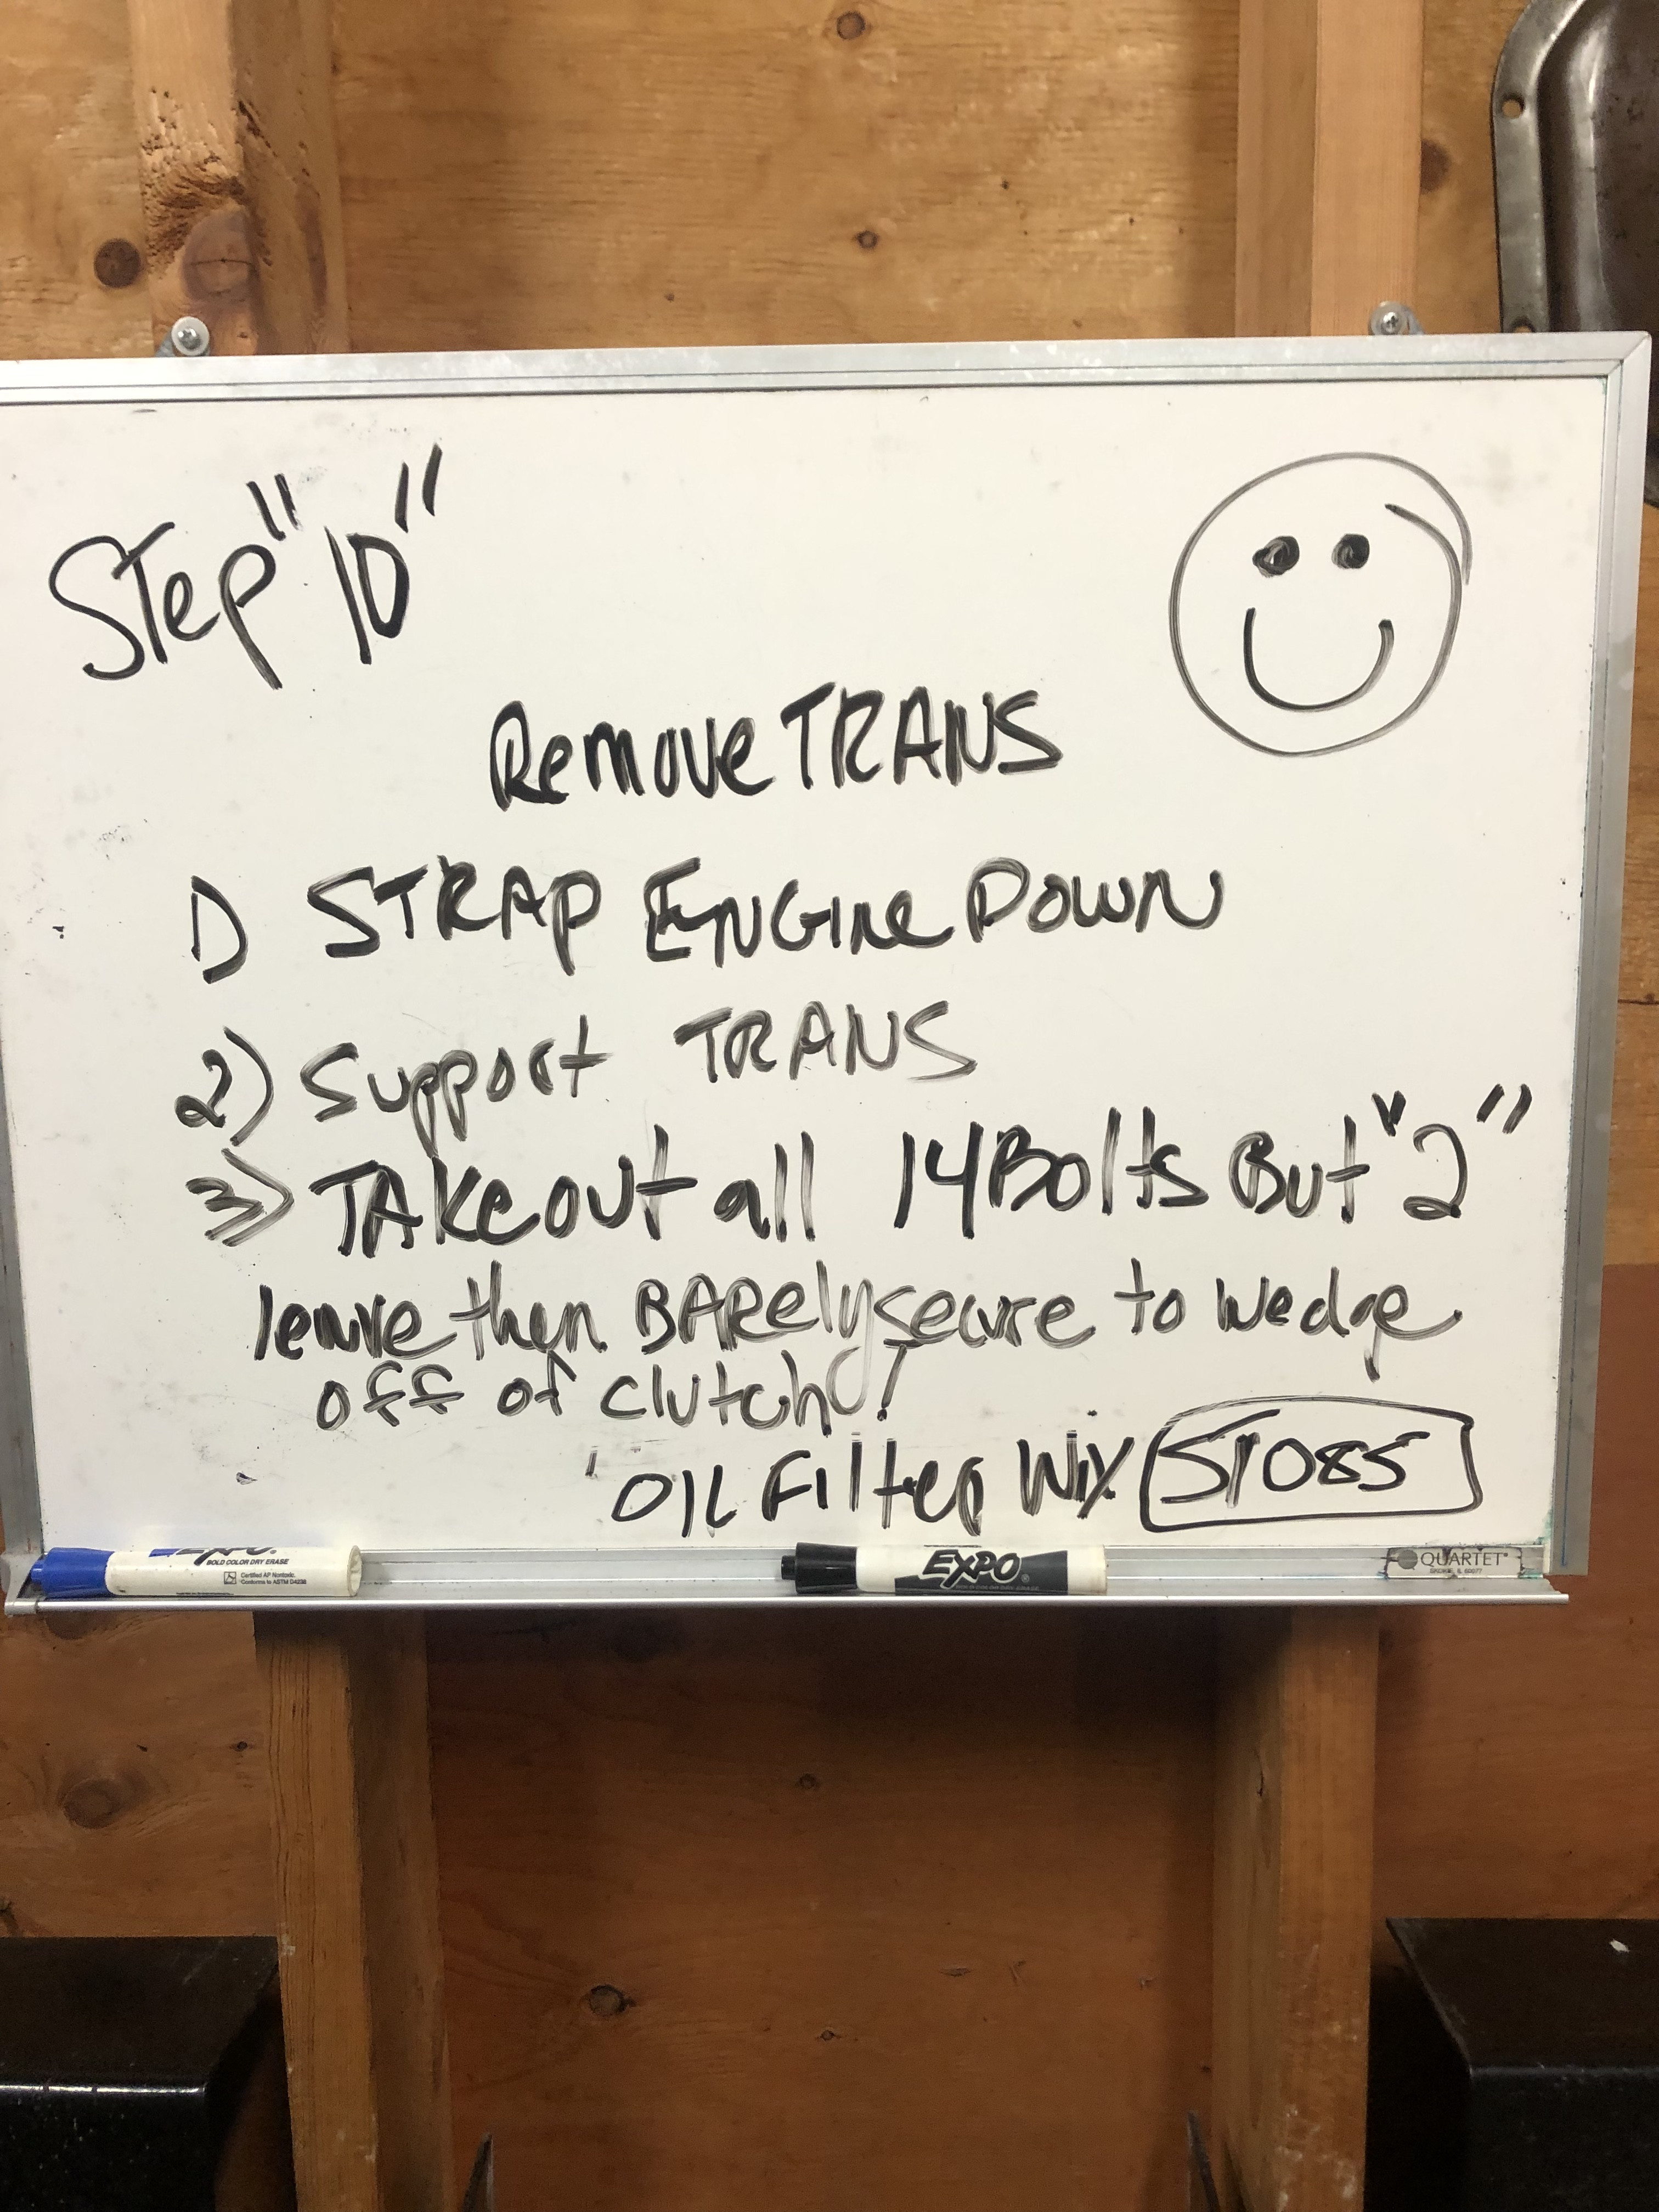 Step "10"
Remove TRANS
1) STRAP ENGINe DOWN
2) Support TRANS
3) TAKe out all 14 Bolts But "2"
leave them BARely secure to wedge
off of clutch!
OIL Filter Wix 51085
EXPO
BOLD COLOR DRY ERASE
Certified AP Nontoxic.
Conforms to ASTM D4236
EXPO
QUARTET